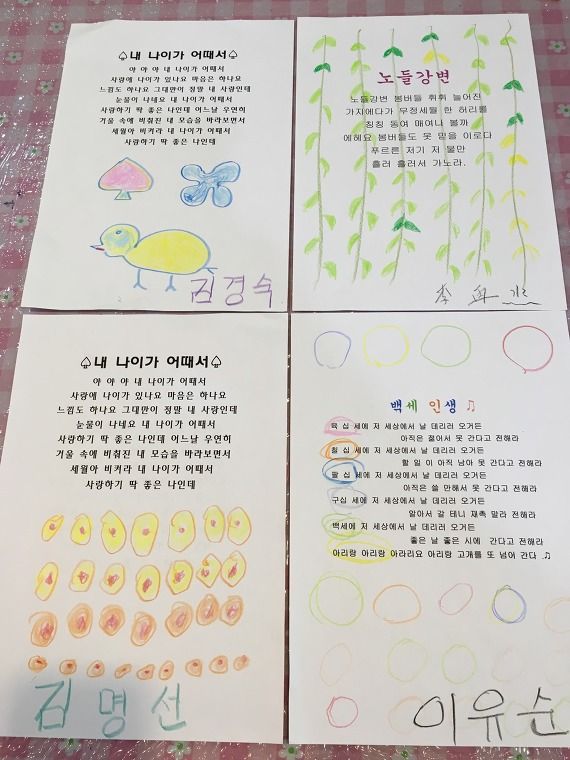 ♤내 나이가 어때서♤
야 야 야 내 나이가 어때서
사랑에 나이가 있나요 마음은 하나요
느낌도 하나요 그대만이 정말 내 사랑인데
눈물이 나네요 내 나이가 어때서
사랑하기 딱 좋은 나인데 어느날 우연히
거울 속에 비춰진 내 모습을 바라보면서
세월아 비켜라 내 나이가 어때서
사랑하기 딱 좋은 나인데
김경숙
노들강변
노들강변 봄버들 휘휘 늘어진
가지에다가 무정세월 한 허리를
칭칭 동여 매여나 볼까
에헤요 봄버들도 못 믿을 이로다
푸르른 저기 저 물만
흘러 흘러서 가노라.
李
♤내 나이가 어때서♤
야 야 야 내 나이가 어때서
사랑에 나이가 있나요 마음은 하나요
느낌도 하나요 그대만이 정말 내 사랑인데
눈물이 나네요 내 나이가 어때서
사랑하기 딱 좋은 나인데 어느날 우연히
거울 속에 비춰진 내 모습을 바라보면서
세월아 비켜라 내 나이가 어때서
사랑하기 딱 좋은 나인데
김명선
백세 인생 ♫
육 십 세에 저 세상에서 날 데리러 오거든
아직은 젊어서 못 간다고 전해라
칠 십 세에 저 세상에서 날 데리러 오거든
할 일 이 아직 남아 못 간다고 전해라
팔 십 세에 저 세상에서 날 데리러 오거든
아직은 쓸 만해서 못 간다고 전해라
구십 세에 저 세상에서 날 데리러 오거든
알아서 갈 테니 재촉 말라 전해라
백세에 저 세상에서 날 데리러 오거든
좋은 날 좋은 시에 간다고 전해라
아리랑 아리랑 아라리요 아리랑 고개를 또 넘어 간다 .♫
이유순